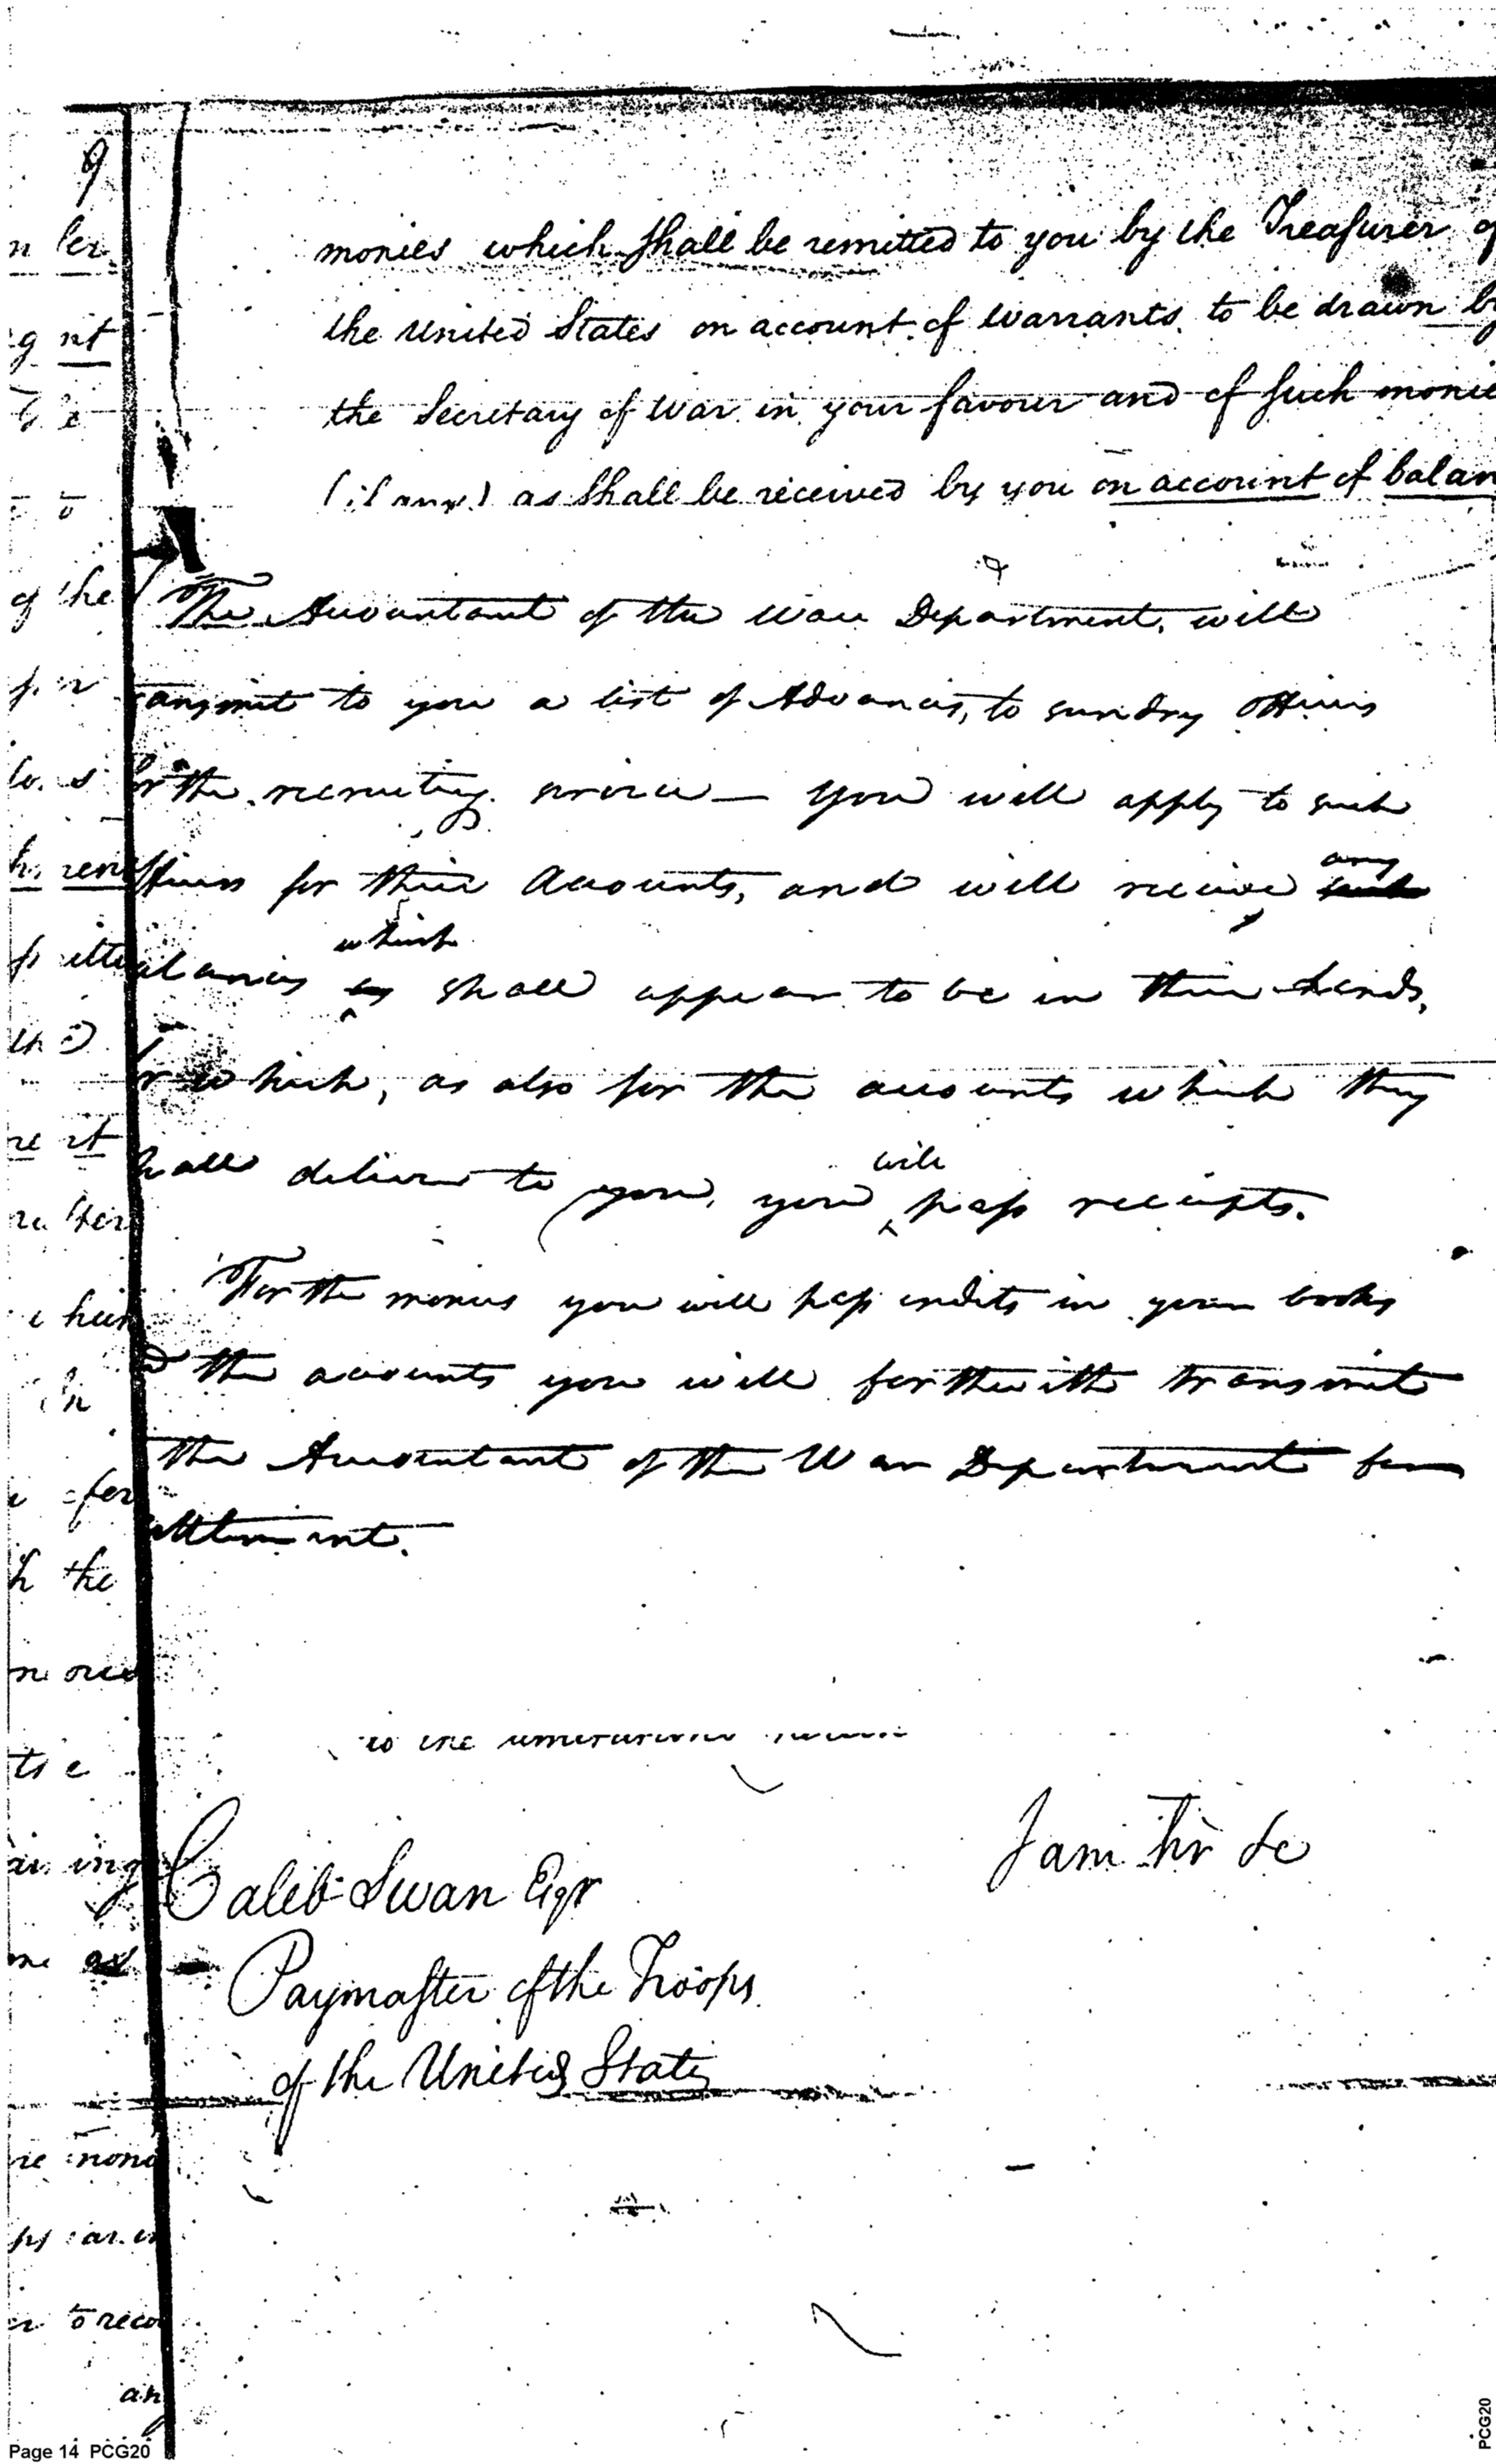 9
monies which shall be remitted to you by the Treasurer of
the United States on account of Warrants to be drawn by
the Secretary of War in your favour and of such monie
(if any) as shall be received by you on account of balan
The Accountant of the War Department, will
ransmit to you a list of Advances, to sundry officers
for the recruiting service — you will apply to such
fficers for their Accounts, and will receive any such
alances which as shall appear to be in their hands,
for which, as also for the accounts which they
hall deliver to you, you will pass receipts.
For the monies you will pass credits in your books
d the accounts you will forthwith transmit
the Accountant of the War Department for
ettlement.
I am Sir &c
Caleb Swan Esqr
Paymaster of the Troops
of the United States
Page 14 PCG20
PCG20